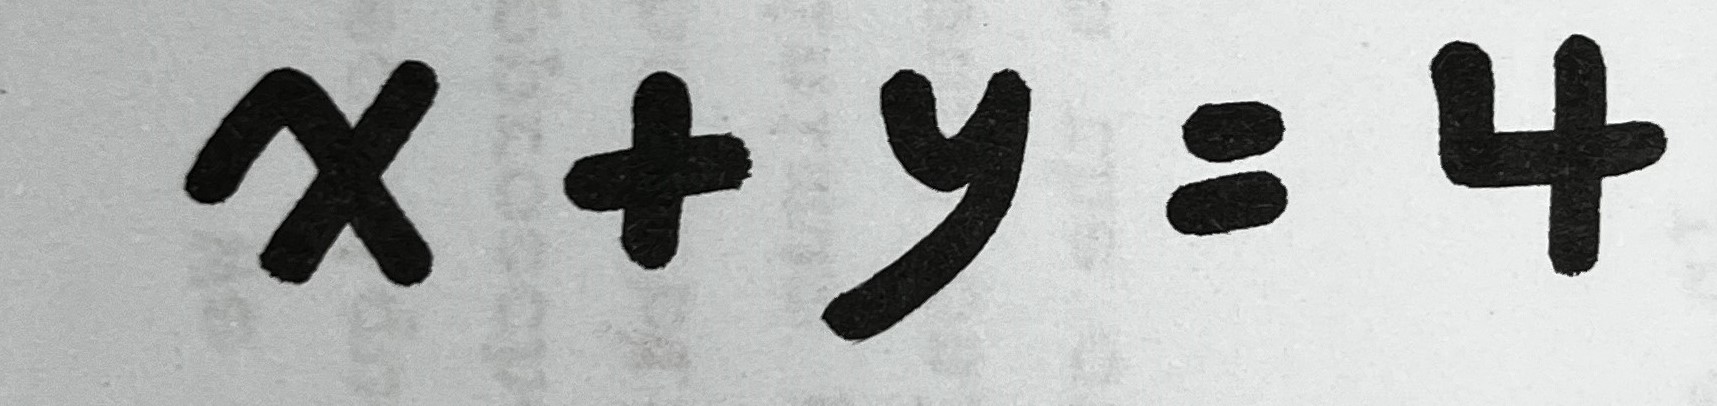 x + y = 4